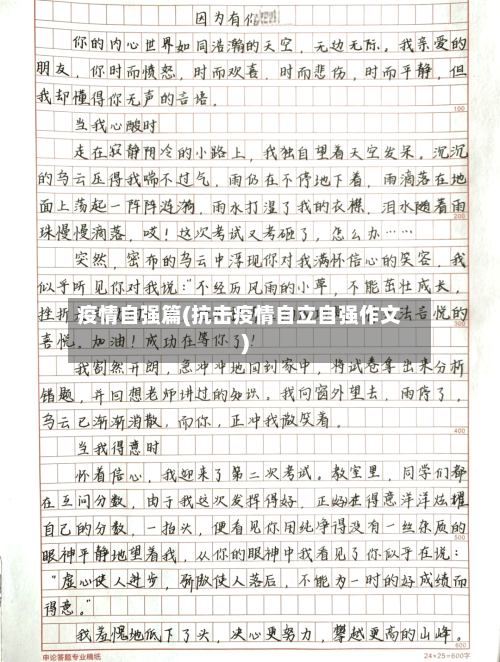 因为有你
你的内心世界如同浩瀚的天空，无边无际。我亲爱的
朋友，你时而愤怒，时而欢喜，时而悲伤，时而平静，但
我却懂得你无声的言语。
100
当我心酸时
走在寂静阴冷的小路上，我独自望着天空发呆。沉沉
的乌云压得我喘不过气，雨仍在不停地下着，雨滴落在地
面上荡起一阵阵涟漪，雨水打湿了我的衣襟，泪水随着雨
200
珠慢慢滴落，哎！这次考试又考砸了，怎么办……
突然，密布的乌云中浮现你对我满怀信心的笑容，我
似乎听见你对我说：“不经历风雨的小草，不能茁壮成长，
挫折
疫情自强篇(抗击疫情自立自强作文
)
法言悦的
喜悦。加油！成功在等你了！
我豁然开朗，急冲冲地回到家中，将试卷拿出来分析
错题，并回想老师讲过的知识。我向窗外望去，雨停了，
乌云已渐渐消散，而你，正冲我微笑着。
400
当我得意时
怀着信心，我迎来了第二次考试。教室里，同学们都
在互问分数，由于我这次发挥得好，正好在得意洋洋炫耀
自己的分数，一抬头，便看见你用纯净得没有一丝杂质的
500
眼神平静地望着我，从你的眼神中我看见了你似乎在说：
“虚心使人进步，骄傲使人落后，不能为一时的好成绩而
得意。”
我羞愧地低下了头，决心更努力，攀越更高的山峰。
600
申论答题专业稿纸
24×25=600字